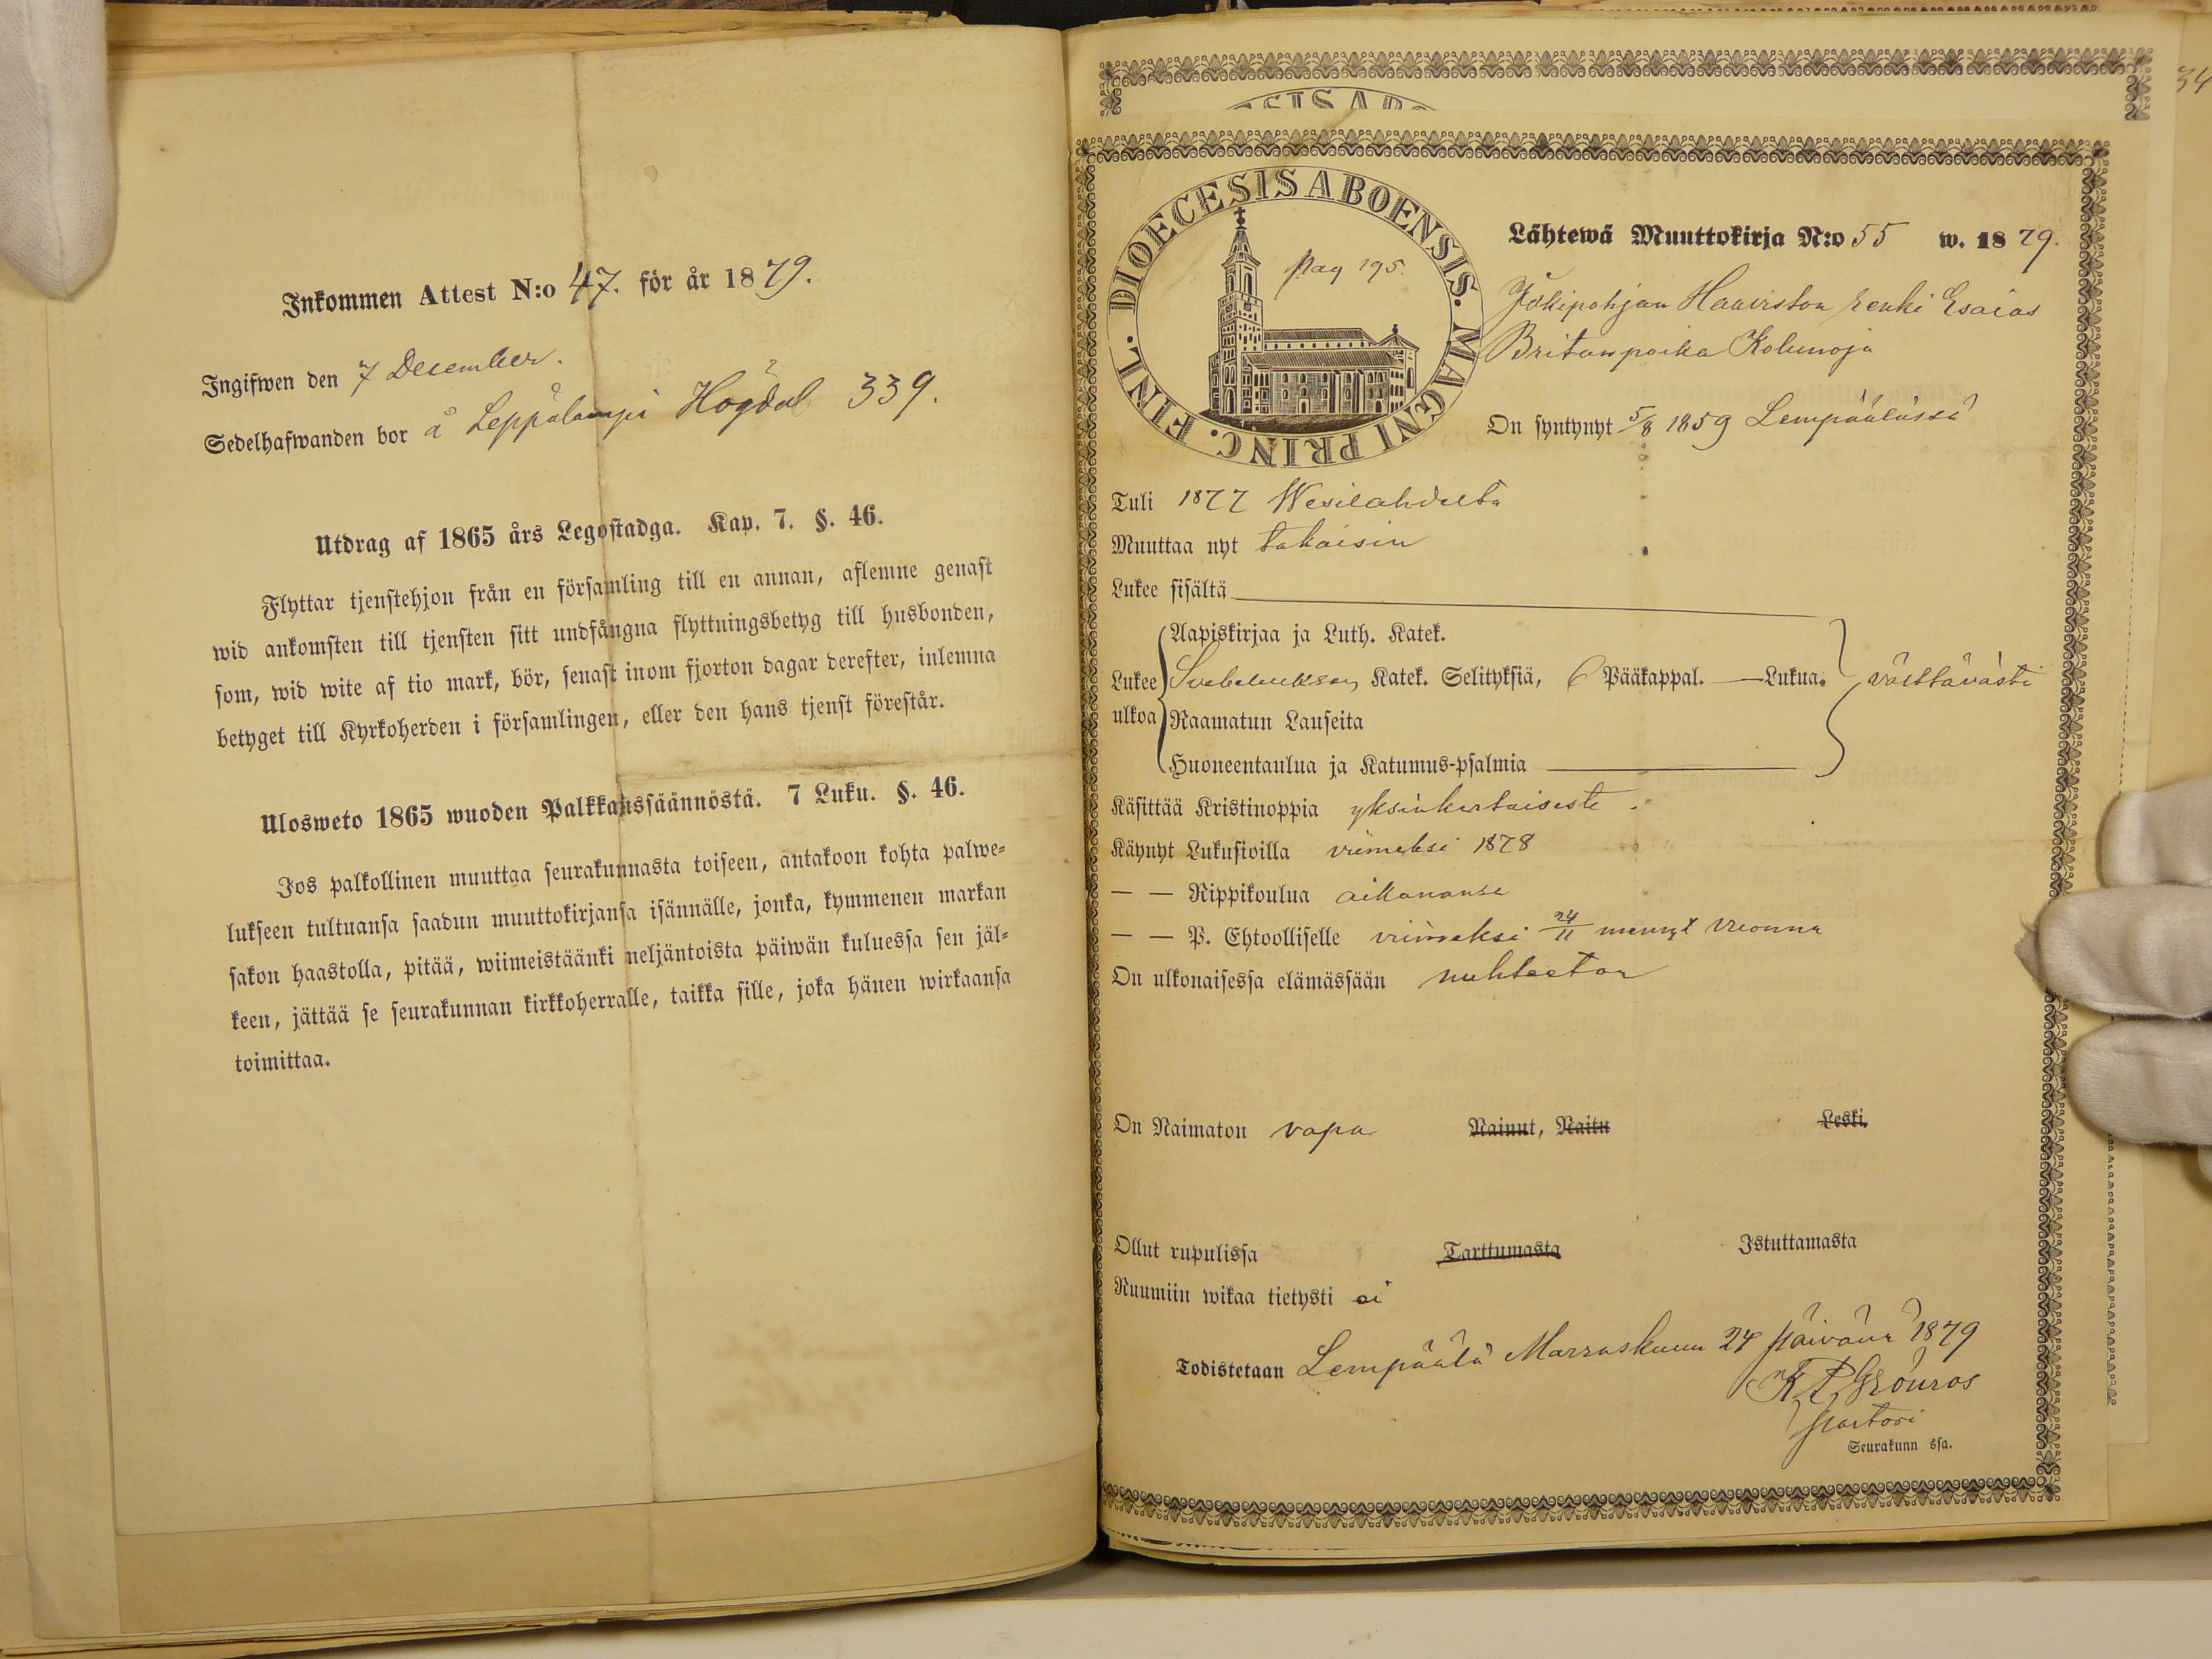 Inkommen Attest N:o 47. för år 1879.
Ingifwen den 7 December.
Sedelhafwanden bor å Leppälampi Högdal 339.
Utdrag af 1865 års Legostadga. Kap. 7. §. 46.
Flyttar tjenstehjon från en församling till en annan, aflemne genast
wid ankomsten till tjensten sitt undfångna flyttningsbetyg till husbonden,
som, wid wite af tio mark, bör, senast inom fjorton dagar derefter, inlemna
betyget till Kyrkoherden i församlingen, eller den hans tjenst förestår.
Ulosweto 1865 wuoden Palkkaussäännöstä. 7 Luku. §. 46.
Jos palkollinen muuttaa seurakunnasta toiseen, antakoon kohta palwe-
lukseen tultuansa saadun muuttokirjansa isännälle, jonka, kymmenen markan
sakon haastolla, pitää, wiimeistäänki neljäntoista päiwän kuluessa sen jäl-
keen, jättää se seurakunnan kirkkoherralle, taikka sille, joka hänen wirkaansa
toimittaa.
34
DIOECESIS ABOENSIS. MAGNI PRINC. FINL.
Pag 195.
Lähtewä Muuttokirja N:o 55 w. 1879.
Jokipohjan Haaviston renki Esaias
Britanpoika Kolunoja
On syntynyt 5/8 1859 Lempäälässä
Tuli 1877 Wesilahdelta
Muuttaa nyt takaisin
Lukee sisältä
Aapiskirjaa ja Luth. Katek.
Lukee ulkoa Svebeliuksen Katek. Selityksiä, 6 Pääkappal. — Lukua. välttävästi
Raamatun Lauseita
Huoneentaulua ja Katumus-psalmia
Käsittää Kristinoppia yksinkertaisesti.
Käynyt Lukusioilla viimeksi 1878
— — Rippikoulua aikananse
— — P. Ehtoolliselle viimeksi 24/11 mennyt vuonna
On ulkonaisessa elämässään nuhteeton
On Naimaton vapa Nainut, Naitu Leski.
Ollut rupulissa Tarttumasta Istuttamasta
Ruumiin wikaa tietysti ei
Todistetaan Lempäälä Marraskuun 24 päivänä 1879
Grönros
pastori
Seurakunn ssa.